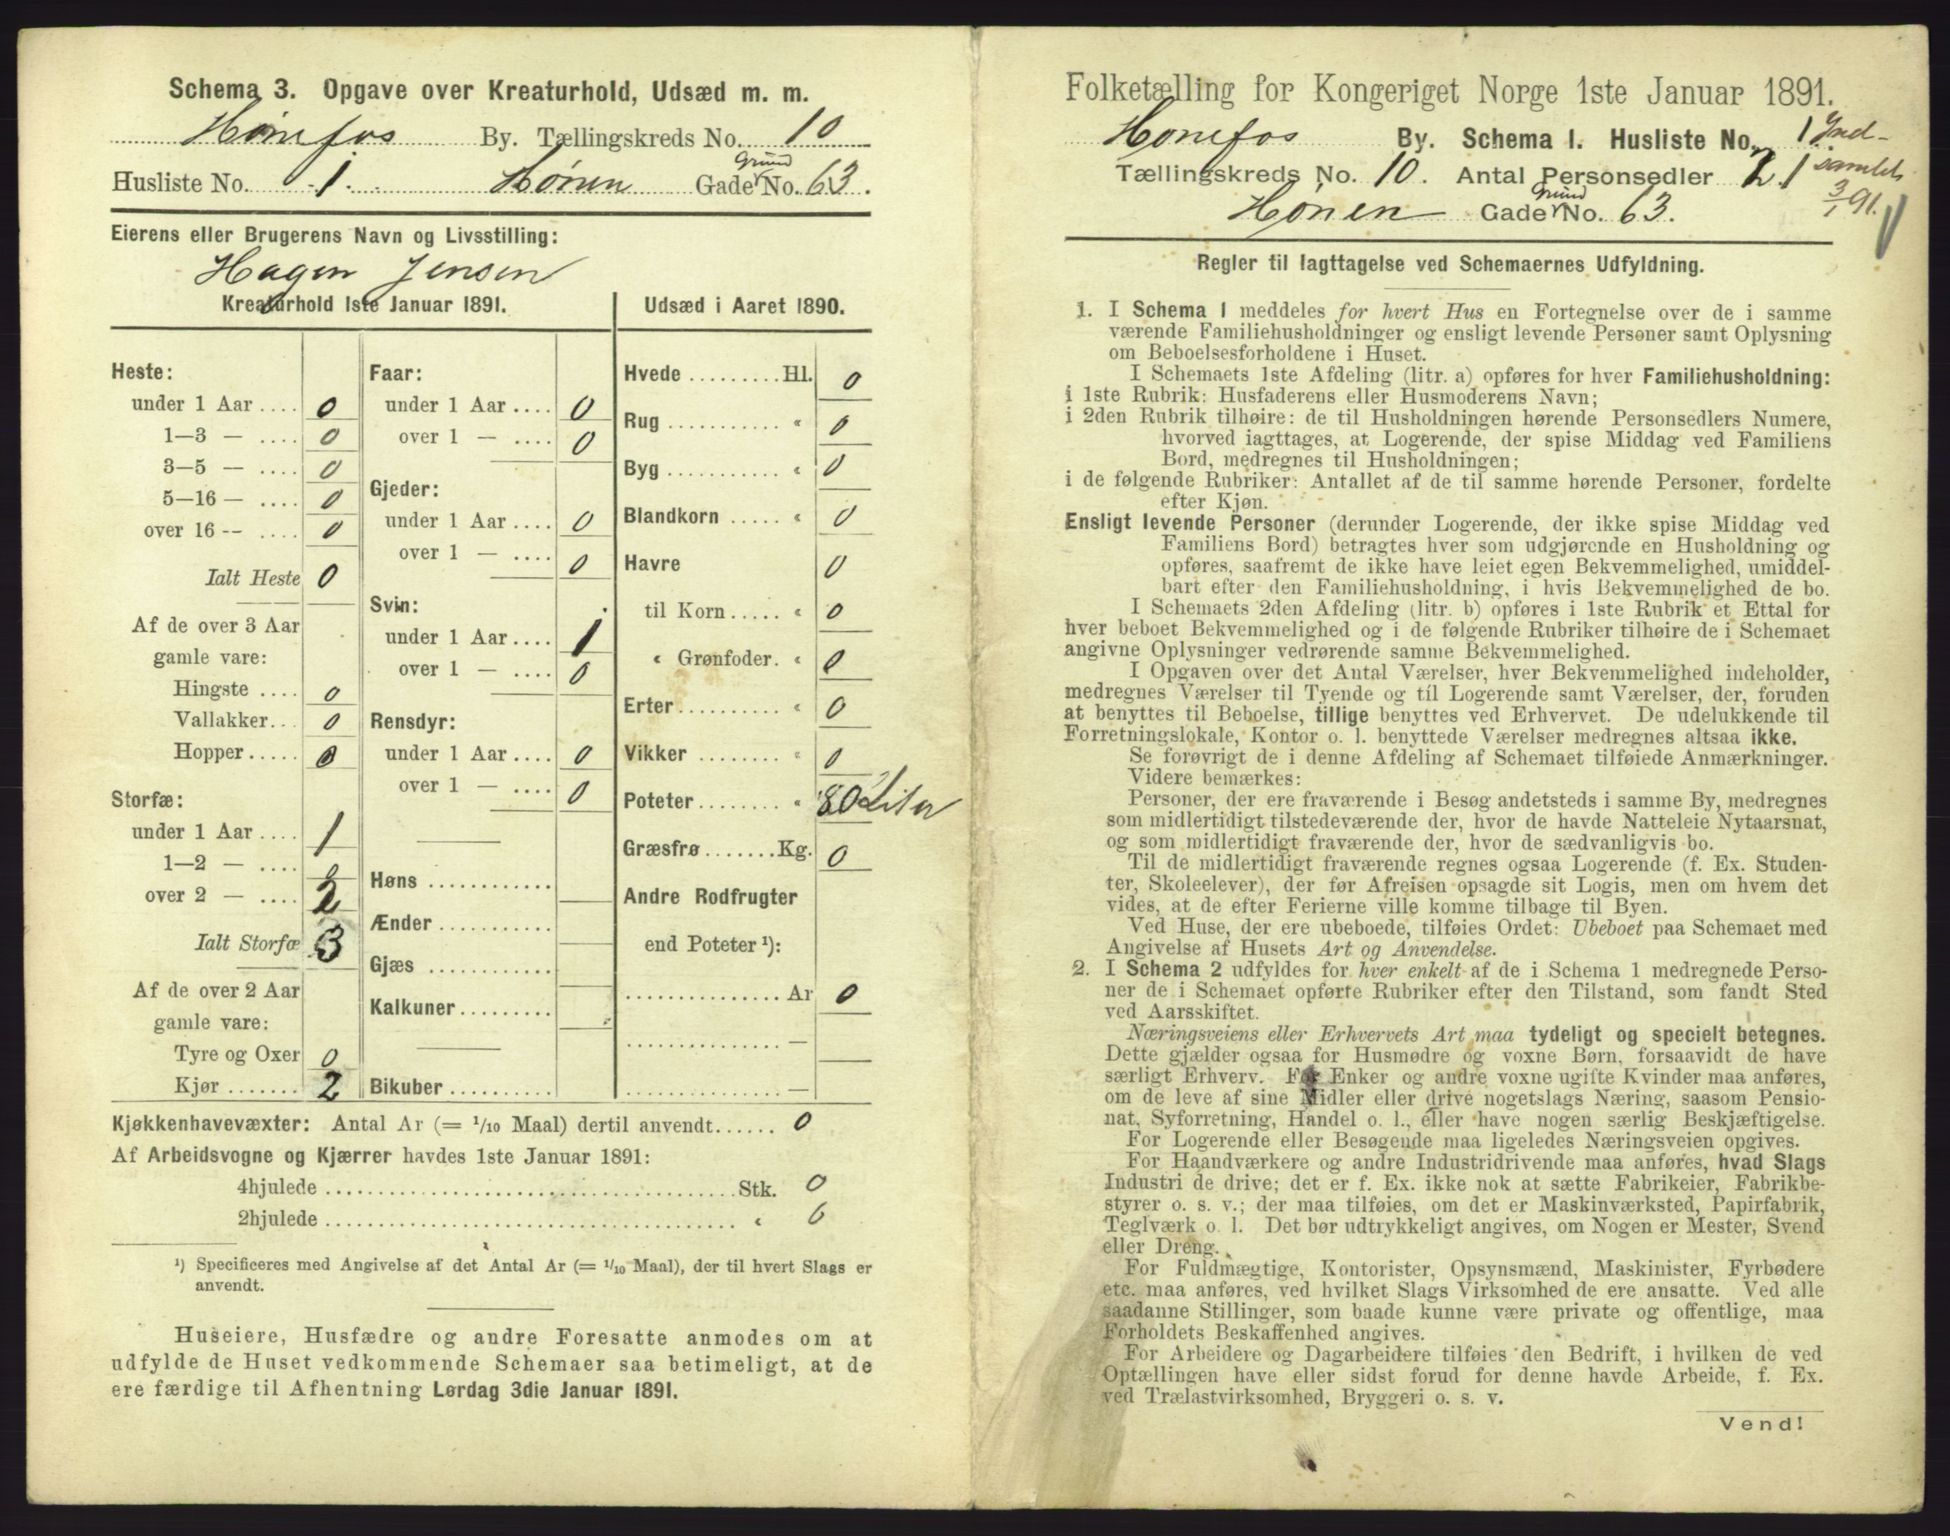 Schema 3. Opgave over Kreaturhold, Udsæd m. m.
Hønefos By. Tællingskreds No. 10
Husliste No. 1. Hønen Gade Grund No. 63.
Eierens eller Brugerens Navn og Livsstilling:
Hagen Jensen
Kreaturhold 1ste Januar 1891.
Heste:
under 1 Aar .... 0
1—3 — .... 0
3—5 — .... 0
5—16 — .... 0
over 16 -- .... 0
Ialt Heste 0
Af de over 3 Aar
gamle vare:
Hingste .... 0
Vallakker... 0
Hopper..... 0
Storfæ:
under 1 Aar .... 1
1—2 — .... 0
over 2 — .... 2
Ialt Storfæ 3
Af de over 2 Aar
gamle vare:
Tyre og Oxer 0
Kjør ....... 2
Faar:
under 1 Aar .... 0
over 1 — .... 0
Gjeder:
under 1 Aar .... 0
over 1 — .... 0
Svin:
under 1 Aar .... 1
over 1 — .... 0
Rensdyr:
under 1 Aar .... 0
over 1 — .... 0
Høns ............
Ænder ............
Gjæs ............
Kalkuner.........
Bikuber..........
Udsæd i Aaret 1890.
Hvede ......... Hl. 0
Rug ........... „ 0
Byg ........... „ 0
Blandkorn ..... „ 0
Havre 0
til Korn..... „ 0
„ Grønfoder. „ 0
Erter.......... „ 0
Vikker ........ „ 0
Poteter........ „ 80 Liter
Græsfrø.......Kg. 0
Andre Rodfrugter
end Poteter ¹):
............... Ar 0
............... —
............... —
Kjøkkenhavevæxter: Antal Ar (= 1/10 Maal) dertil anvendt...... 0
Af Arbeidsvogne og Kjærrer havdes 1ste Januar 1891:
4hjulede ........................................ Stk. 0
2hjulede ........................................ „ 0
¹) Specificeres med Angivelse af det Antal Ar (= 1/10 Maal), der til hvert Slags er
anvendt.
Huseiere, Husfædre og andre Foresatte anmodes om at
udfylde de Huset vedkommende Schemaer saa betimeligt, at de
ere færdige til Afhentning Lørdag 3die Januar 1891.
Folketælling for Kongeriget Norge 1ste Januar 1891.
Hønefos By. Schema I. Husliste No. 1
Tællingskreds No. 10. Antal Personsedler 21
Hønen Gade Grund No. 63.
Ind-
samlet
3/1 91.
Regler til Iagttagelse ved Schemaernes Udfyldning.
1. I Schema 1 meddeles for hvert Hus en Fortegnelse over de i samme
værende Familiehusholdninger og ensligt levende Personer samt Oplysning
om Beboelsesforholdene i Huset.
I Schemaets 1ste Afdeling (litr. a) opføres for hver Familiehusholdning:
i 1ste Rubrik: Husfaderens eller Husmoderens Navn;
i 2den Rubrik tilhøire: de til Husholdningen hørende Personsedlers Numere,
hvorved iagttages, at Logerende, der spise Middag ved Familiens
Bord, medregnes til Husholdningen;
i de følgende Rubriker: Antallet af de til samme hørende Personer, fordelte
efter Kjøn.
Ensligt levende Personer (derunder Logerende, der ikke spise Middag ved
Familiens Bord) betragtes hver som udgjørende en Husholdning og
opføres, saafremt de ikke have leiet egen Bekvemmelighed, umiddel-
bart efter den Familiehusholdning, i hvis Bekvemmelighed de bo.
I Schemaets 2den Afdeling (litr. b) opføres i 1ste Rubrik et Ettal for
hver beboet Bekvemmelighed og i de følgende Rubriker tilhøire de i Schemaet
angivne Oplysninger vedrørende samme Bekvemmelighed.
I Opgaven over det Antal Værelser, hver Bekvemmelighed indeholder,
medregnes Værelser til Tyende og til Logerende samt Værelser, der, foruden
at benyttes til Beboelse, tillige benyttes ved Erhvervet. De udelukkende til
Forretningslokale, Kontor o. l. benyttede Værelser medregnes altsaa ikke.
Se forøvrigt de i denne Afdeling af Schemaet tilføiede Anmærkninger.
Videre bemærkes:
Personer, der ere fraværende i Besøg andetsteds i samme By, medregnes
som midlertidigt tilstedeværende der, hvor de havde Natteleie Nytaarsnat,
og som midlertidigt fraværende der, hvor de sædvanligvis bo.
Til de midlertidigt fraværende regnes ogsaa Logerende (f. Ex. Studen-
ter, Skoleelever), der før Afreisen opsagde sit Logis, men om hvem det
vides, at de efter Ferierne ville komme tilbage til Byen.
Ved Huse, der ere ubeboede, tilføies Ordet: Ubeboet paa Schemaet med
Angivelse af Husets Art og Anvendelse.
2. I Schema 2 udfyldes for hver enkelt af de i Schema 1 medregnede Perso-
ner de i Schemaet opførte Rubriker efter den Tilstand, som fandt Sted
ved Aarsskiftet.
Næringsveiens eller Erhvervets Art maa tydeligt og specielt betegnes.
Dette gjælder ogsaa for Husmødre og voxne Børn, forsaavidt de have
særligt Erhverv. For Enker og andre voxne ugifte Kvinder maa anføres,
om de leve af sine Midler eller drive nogetslags Næring, saasom Pensio-
nat, Syforretning, Handel o. l., eller have nogen særlig Beskjæftigelse.
For Logerende eller Besøgende maa ligeledes Næringsveien opgives.
For Haandværkere og andre Industridrivende maa anføres, hvad Slags
Industri de drive; det er f. Ex. ikke nok at sætte Fabrikeier, Fabrikbe-
styrer o. s. v.; der maa tilføies, om det er Maskinværksted, Papirfabrik,
Teglværk o. l. Det bør udtrykkeligt angives, om Nogen er Mester, Svend
eller Dreng.
For Fuldmægtige, Kontorister, Opsynsmænd, Maskinister, Fyrbødere
etc. maa anføres, ved hvilket Slags Virksomhed de ere ansatte. Ved alle
saadanne Stillinger, som baade kunne være private og offentlige, maa
Forholdets Beskaffenhed angives.
For Arbeidere og Dagarbeidere tilføies den Bedrift, i hvilken de ved
Optællingen have eller sidst forud for denne havde Arbeide, f. Ex.
ved Trælastvirksomhed, Bryggeri o. s. v.
Vend!